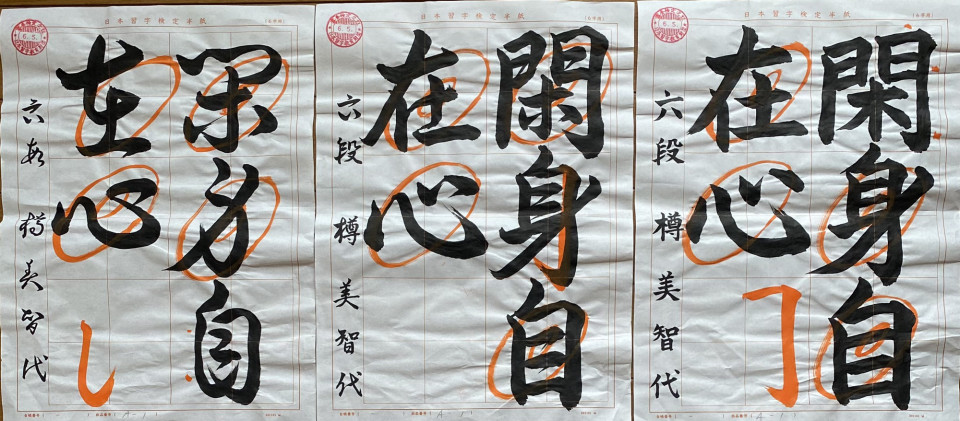 日本習字検定半紙
閑身自
在心
六段 樽美智代
6.5.
日本習字検定半紙
閑身自
在心
六段 樽美智代
6.5.
日本習字検定半紙
閑身自
在心
六段 樽美智代
6.5.